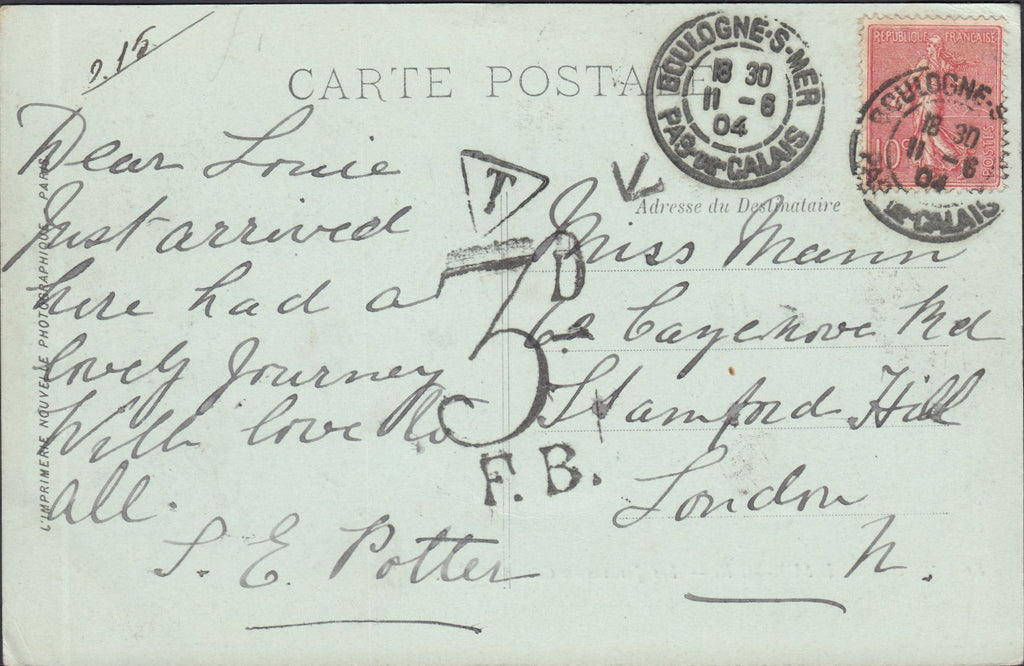 CARTE POSTALE
BOULOGNE-S-MER
18 30
11 - 6
04
PAS-DE-CALAIS
REPUBLIQUE FRANÇAISE
10c
POSTES
BOULOGNE-S
18 30
11 - 6
04
PAS-DE-CALAIS
Dear Louie
Just arrived
here had a
lovely Journey
With love to
all.
S. E. Potter
T
5D
F.B.
Adresse du Destinataire
Miss Mann
Cazenove Rd
Stamford Hill
London
N.
L'IMPRIMERIE NOUVELLE PHOTOGRAPHIQUE, PARIS